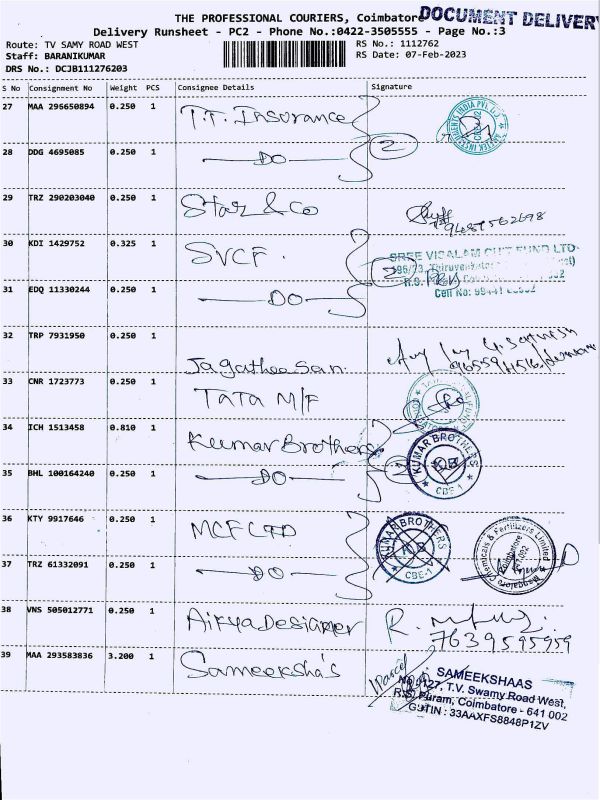 THE PROFESSIONAL COURIERS, Coimbatore
DOCUMENT DELIVERY
Delivery Runsheet - PC2 - Phone No.:0422-3505555 - Page No.:3
Route: TV SAMY ROAD WEST
RS No.: 1112762
Staff: BARANIKUMAR
RS Date: 07-Feb-2023
DRS No.: DCJB111276203
S No Consignment No Weight PCS Consignee Details Signature
27 MAA 295650894 0.250 1 T.T. Insurance
28 DDG 4695085 0.250 1 DO 2
29 TRZ 290203040 0.250 1 Star & Co
30 KDI 1429752 0.325 1 SVCF.
SREE VISALAM CHIT FUND LTD.
31 EDQ 11330244 0.250 1 DO 2
Cell No:
32 TRP 7931950 0.250 1 Jagatheesan.
33 CNR 1723773 0.250 1 TATA M/F
34 ICH 1513458 0.810 1 Kumar Brothers
KUMAR BROTHERS
KB
CBE-1
35 BHL 100164240 0.250 1 DO 2
36 KTY 9917646 0.250 1 MCF LTD
KUMAR BROTHERS
KB
CBE-1
Mangalore Chemicals & Fertilizers Limited
Coimbatore
37 TRZ 61332091 0.250 1 DO
38 VNS 505012771 0.250 1 Aikya Designer
7639595959
39 MAA 293583836 3.200 1 Sameeksha's
SAMEEKSHAAS
No.127, T.V. Swamy Road West,
R.S. Puram, Coimbatore - 641 002
GSTIN : 33AAXFS8848P1ZV